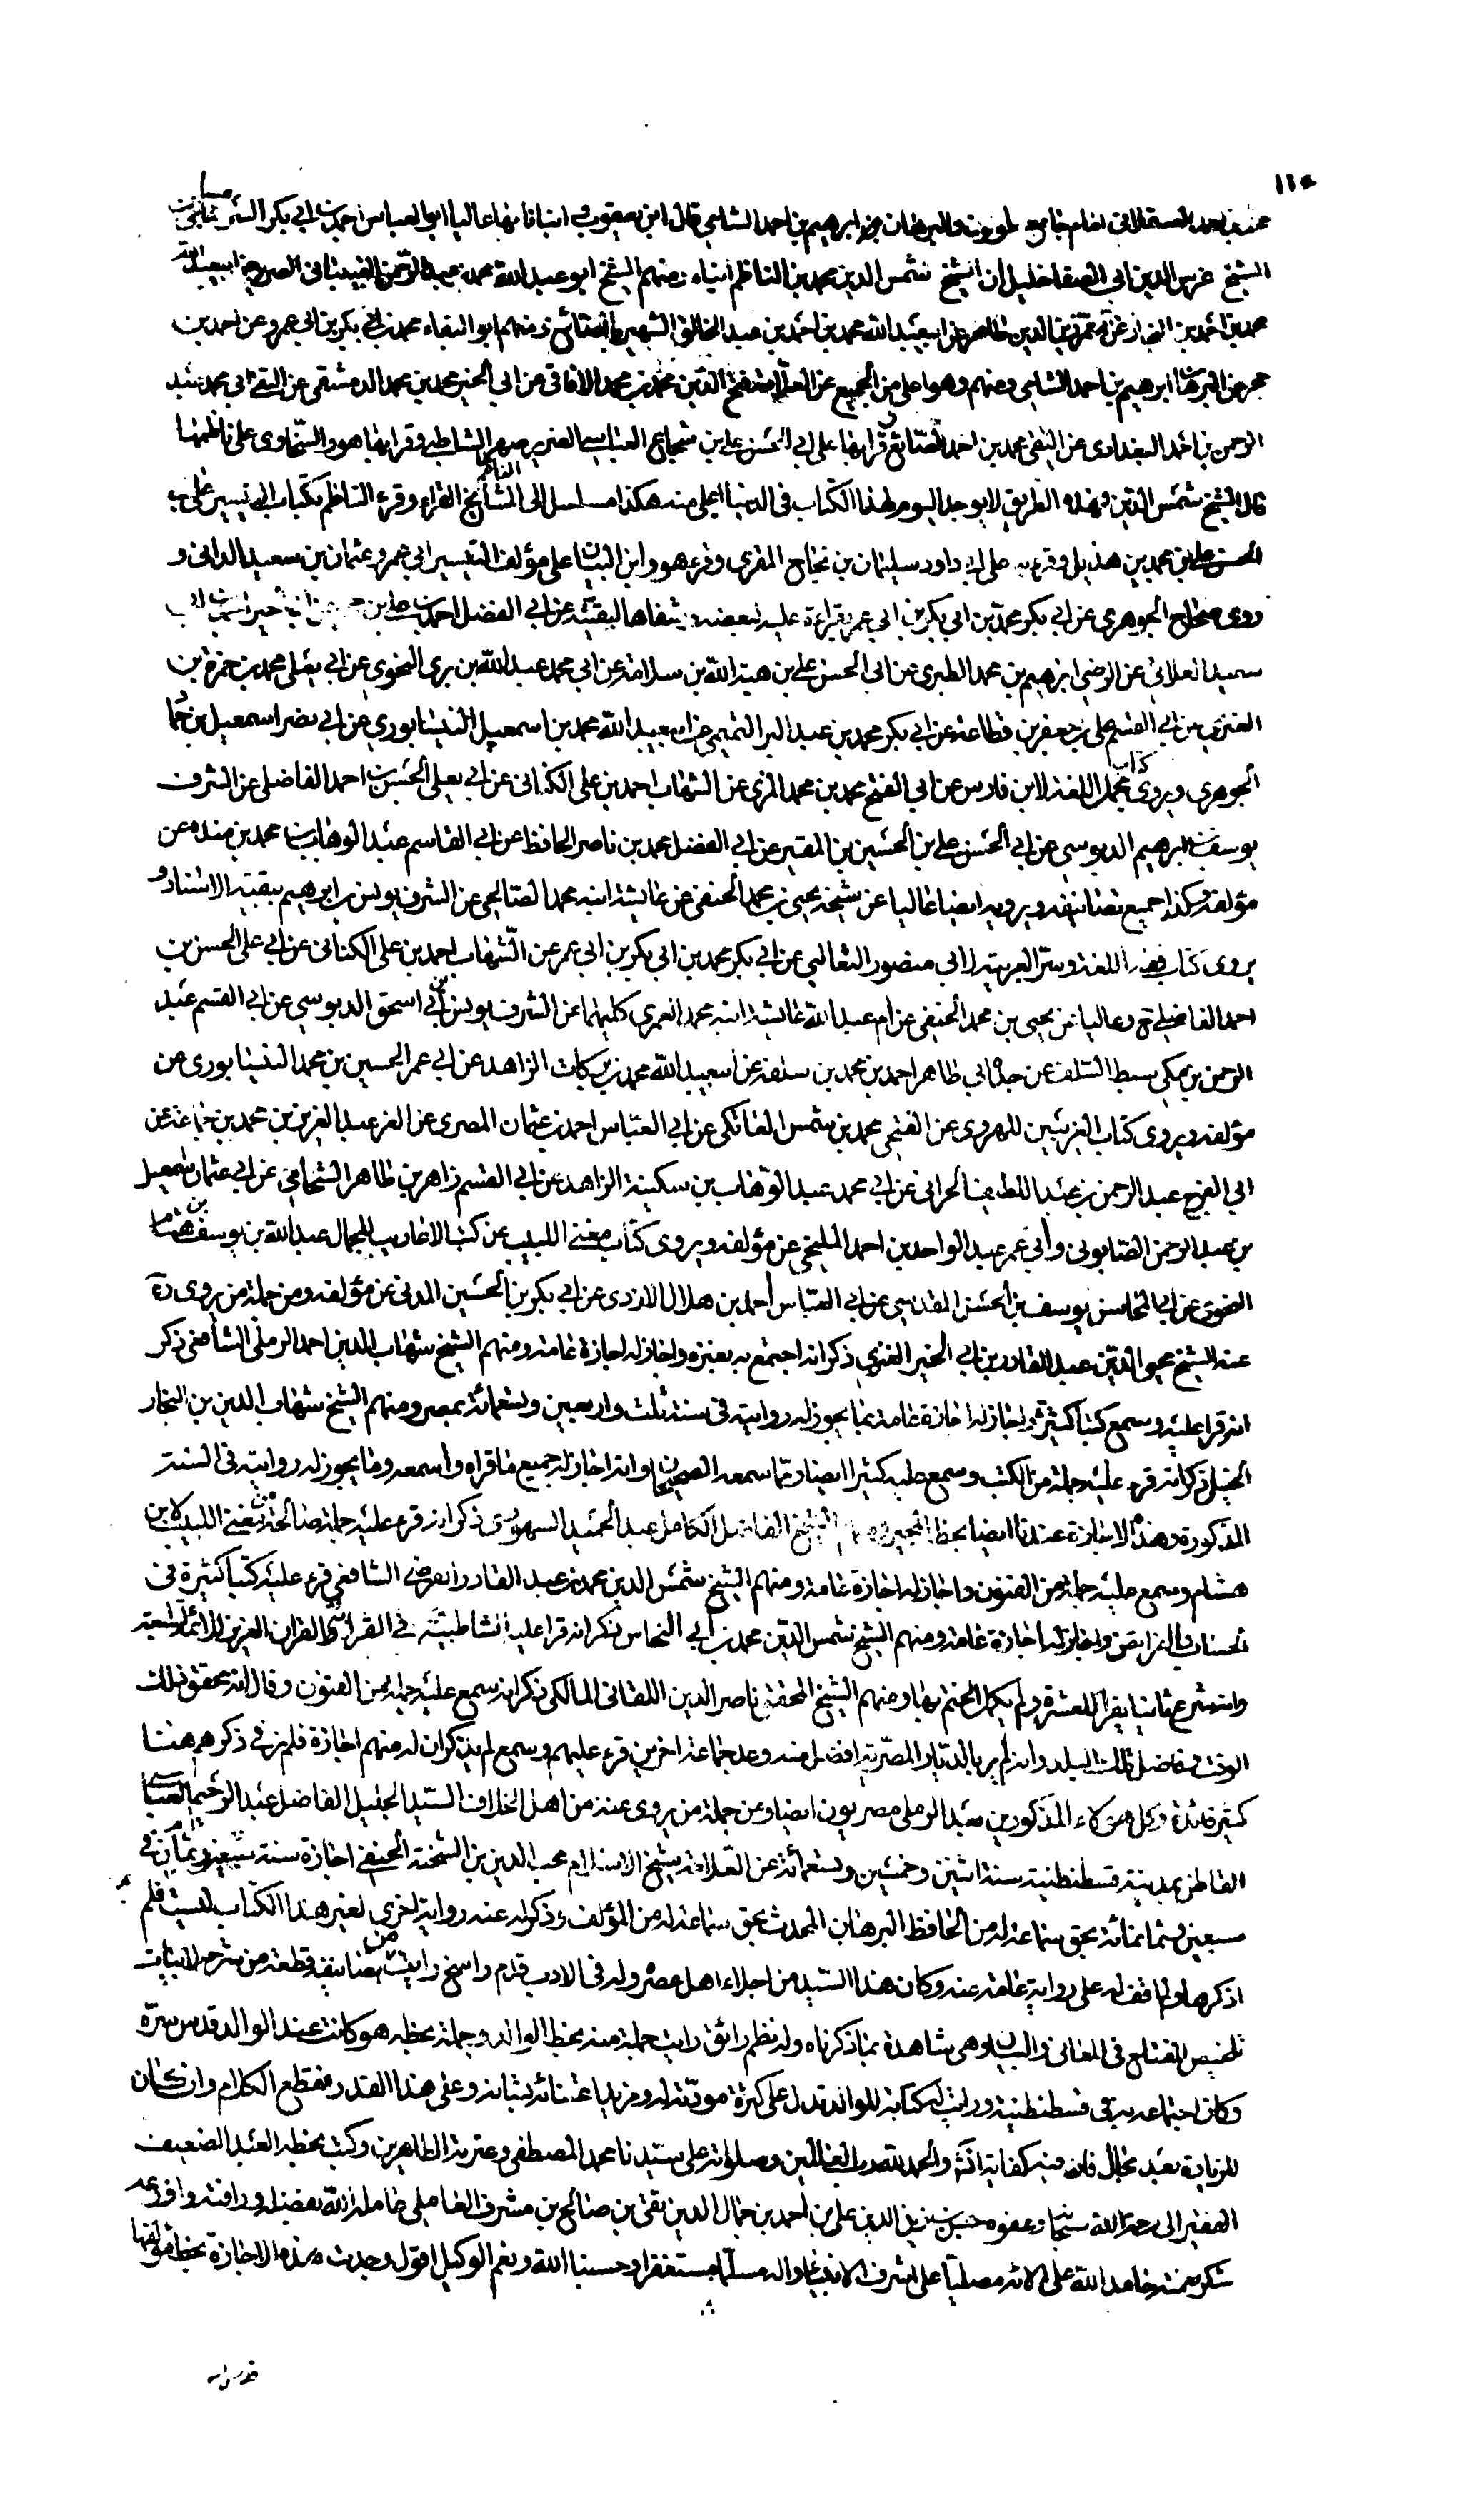 محمد بن احمد العسقلاني امام جامع طولون والبرهان ابرهيم بن احمد الشامي قال ابن يعقوب انبانا بها عاليا ابو العباس احمد بن ابي بكر
الشيخ غرس الدين ابي الصفا خليل ان الشيخ شمس الدين محمد بن الناظم انباه ومنهم الشيخ ابو عبد الله محمد بن عبد الرحمن
محمد بن احمد بن النجار عن محمد بن احمد بن عبد الخالق الشهير بالصائغ ومنهم ابو البقاء محمد بن ابي بكر بن ابي عمرو عن احمد بن
حجر عن البرهان ابرهيم بن احمد الشامي ومنهم وهو اعلى من الجميع عن العلامة فتح الدين محمد بن محمد الافاقي عن ابي الخير محمد بن محمد الدمشقي عن التقي ابي محمد عبد
الرحمن بن احمد البغدادي عن التقي محمد بن احمد الصائغ قرا بها على ابي الحسن علي بن شجاع العباسي الضرير صهر الشاطبي وقرا بها هو والسخاوي على ناظمها
قال الشيخ شمس الدين وبهذه الطريق لا يوجد اليوم لهذا الكتاب في الدنيا اعلى منه هكذا مسلسل الى الناظم المشايخ القراء وقرء الناظم بكتاب التيسير على ابي
الحسن علي بن محمد بن هذيل وقرء به على ابي داود سليمان بن نجاح المقري وقرء هو وابن البيان على مؤلف التيسير ابي عمرو عثمان بن سعيد الداني و
روى صحاح الجوهري عن ابي بكر محمد بن ابي بكر بن ابي عمر بقراءة عليه لبعضه وشفاها لبقيته عن ابي الفضل احمد بن علي بن
سعيد العلائي عن الرضي ابرهيم بن محمد الطبري عن ابي الحسن علي بن هبة الله بن سلامة عن ابي محمد عبد الله بن بري النحوي عن ابي يعلى محمد بن حمزة بن
العنزي عن ابي القسم علي بن جعفر بن قطاعه عن ابي بكر محمد بن عبد البر التميمي عن ابي عبيد الله محمد بن اسمعيل النيشابوري عن ابي نصر اسمعيل بن حماد
الجوهري ويروى كتاب مجمل اللغة لابن فارس عن ابي الفتح محمد بن محمد المزي عن الشهاب احمد بن علي الكناني عن ابي يعلى الحسن بن احمد الفاضلي عن الشرف
يوسف بن ابرهيم الدبوسي عن ابي الحسن علي بن الحسين بن المقير عن ابي الفضل محمد بن ناصر الحافظ عن ابي القاسم عبد الوهاب بن محمد بن منده عن
مؤلفه وكذا جميع تصانيفه ويرويه ايضا عاليا عن شيخه يحيى بن محمد الحنفي عن عايشة ابنة محمد الصالحي عن الشرف يونس بن ابرهيم ببقية الاسناد و
يروى كتاب فقه اللغة وسر العربية لابي منصور الثعالبي عن ابي بكر محمد بن ابي بكر بن ابي عمر عن الشهاب احمد بن علي الكناني عن ابي علي الحسن بن
احمد الفاضلي ح وعاليا عن يحيى بن محمد الحنفي عن ام عبد الله عايشة ابنة محمد العمري كليهما عن الشرف يونس بن ابي اسحق الدبوسي عن ابي القسم عبد
الرحمن بن مكي سبط السلفي عن جده ابي طاهر احمد بن محمد بن سلفه عن ابي عبيد الله محمد بن بركات الزاهد عن ابي عمر الحسين بن محمد النيشابوري عن
مؤلفه ويروى كتاب الغريبين للهروي عن الفتحي محمد بن شمس الغانكي عن ابي العباس احمد بن عثمان المصري عن العز عبد العزيز بن محمد بن جماعة عن
ابي الفرج عبد الرحمن بن عبد اللطيف الحراني عن ابي محمد عبد الوهاب بن سكينة الزاهد عن ابي القسم زاهر بن طاهر الشحامي عن ابي عثمان اسمعيل
بن عبد الرحمن الصابوني وابي عمر عبد الواحد بن احمد المليحي عن مؤلفه ويروى كتاب مغني اللبيب عن كتب الاعاريب للجمال عبد الله بن يوسف بن هشام
النحوي عن ابي المحاسن يوسف بن الحسن المقدسي عن ابي العباس احمد بن هلال الازدي عن ابي بكر بن الحسين المدني عن مؤلفه ومن جملة من روى
عنه الشيخ محيي الدين عبد القادر بن ابي الخير الغزي ذكر انه اجتمع به بغزه واجاز له اجازة عامة ومنهم الشيخ شهاب الدين احمد الرملي الشافعي ذكر
انه قرا عليه وسمع كتبا كثيرة واجاز له اجازة عامة بما يجوز له روايته في سنة ثلث واربعين وتسعمائة بمصر ومنهم الشيخ شهاب الدين بن النجار
الحنبلي ذكر انه قرء عليه جملة من الكتب وسمع عليه كثيرا ايضا ومما سمعه الصحيحان وانه اجاز له جميع ما قراه واسمعه وما يجوز له روايته في السنة
المذكورة وهذه الاجازة عندنا ايضا بخط المجيز ومنهم الشيخ الفاضل الكامل عبد الحميد السهودي ذكر انه قرء عليه جملة صالحة من مغني اللبيب لابن
هشام وسمع عليه جملة من الفنون واجاز له اجازة عامة ومنهم الشيخ شمس الدين محمد بن عبد القادر الفرضي الشافعي قرء عليه كتبا كثيرة في
الحساب والفرايض واجاز له اجازة عامة ومنهم الشيخ شمس الدين محمد بن ابي النحاس ذكر انه قرا عليه الشاطبية في القرائة والقران العزيز للائمة السبعة
وانه شرع ثانيا يقرا للعشرة ولم يكمل الختم بها ومنهم الشيخ المحقق ناصر الدين اللقاني المالكي ذكر انه سمع عليه جملة من الفنون وقال انه محقق ذلك
الوقت وفاضل تلك البلد وانه لم ير بالديار المصرية افضل منه وعد جماعة اخرين قرء عليهم وسمع لم يذكر ان له منهم اجازة فلم نر في ذكرهم هنا
كثير فائدة وكل هؤلاء المذكورين بعد الرملي مصريون ايضا ومن جملة من يروى عنه من اهل الخلاف السيد الجليل الفاضل عبد الرحيم العباسي
القاطن بمدينة قسطنطنية سنة اثنتين وخمسين وتسعمائة عن العلامة شيخ الاسلام محب الدين بن الشحنة الحنفي اجازة سنة
سبعين وثمانمائة بحق سماعه له من الحافظ البرهان المحدث بحق سماعه له من المؤلف وذكر له عنه رواية اخرى لغير هذا الكتاب ليست فلم
اذكرها ولم اقف له على رواية عامة عنه وكان هذا السيد من اجلاء اهل عصره وله في الادب قدم راسخ رايت من تصانيفه قطعة من شرحه لابيات
تلخيص المفتاح في المعاني والبيان وهي شاهدة بما ذكرناه وله نظم رائق رايت جملة منه بخط الوالد وجملة بخطه هو كانت عند الوالد قدس سره
وكان اجتماعه به في قسطنطنية ورايت له كتابة للوالد تدل على كثرة مودته له ومزيد اعتنائه بشانه وعلى هذا القدر نقطع الكلام وان كان
للزيادة بعد مجال فان فيه كفاية انشاء والحمد لله رب العالمين وصلواته على سيدنا محمد المصطفى وعترته الطاهرين وكتب بخطه العبد الضعيف
الفقير الى رحمة الله سبحانه وعفوه حسن بن زين الدين علي بن احمد بن جمال الدين تقي بن صالح بن مشرف العاملي عامله الله بفضله ورافته واوزعه
شكر نعمته حامدا لله على الائه مصليا على اشرف الانبياء واله مسلما مستغفرا وحسبنا الله ونعم الوكيل اقول وجدت هذه الاجازة بخط مؤلفها